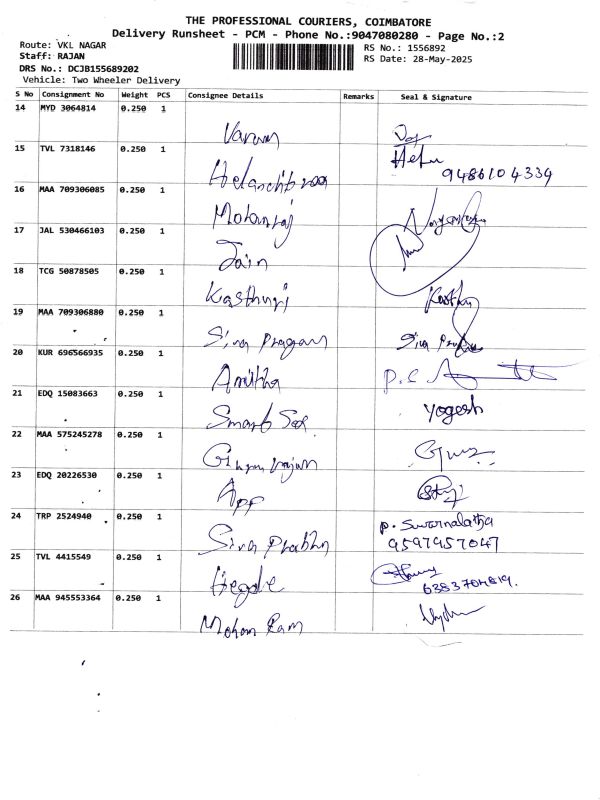 THE PROFESSIONAL COURIERS, COIMBATORE
Delivery Runsheet - PCM - Phone No.:9047080280 - Page No.:2
Route: VKL NAGAR
RS No.: 1556892
Staff: RAJAN
RS Date: 28-May-2025
DRS No.: DCJB155689202
Vehicle: Two Wheeler Delivery
S No Consignment No Weight PCS Consignee Details Remarks Seal & Signature
14 MYD 3064814 0.250 1
Varun
15 TVL 7318146 0.250 1
9486104334
16 MAA 709306085 0.250 1
Mohanraj
17 JAL 530466103 0.250 1
Jain
18 TCG 50878505 0.250 1
Kasthuri
19 MAA 709306880 0.250 1
Siva Pragan
20 KUR 696566935 0.250 1
Amitha P.C
21 EDQ 15083663 0.250 1
Yogesh
22 MAA 575245278 0.250 1
23 EDQ 20226530 0.250 1
App
24 TRP 2524940 0.250 1
P. Suwarnalatha
Siva Prabhu 9597957047
25 TVL 4415549 0.250 1
Hegde 6383704819.
26 MAA 945553364 0.250 1
Mohan Ram